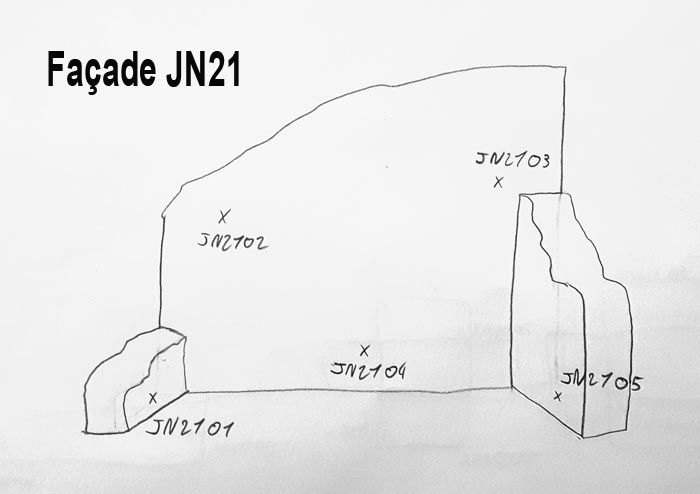 Façade JN21
JN2103
JN2102
JN2104
JN2105
JN2101